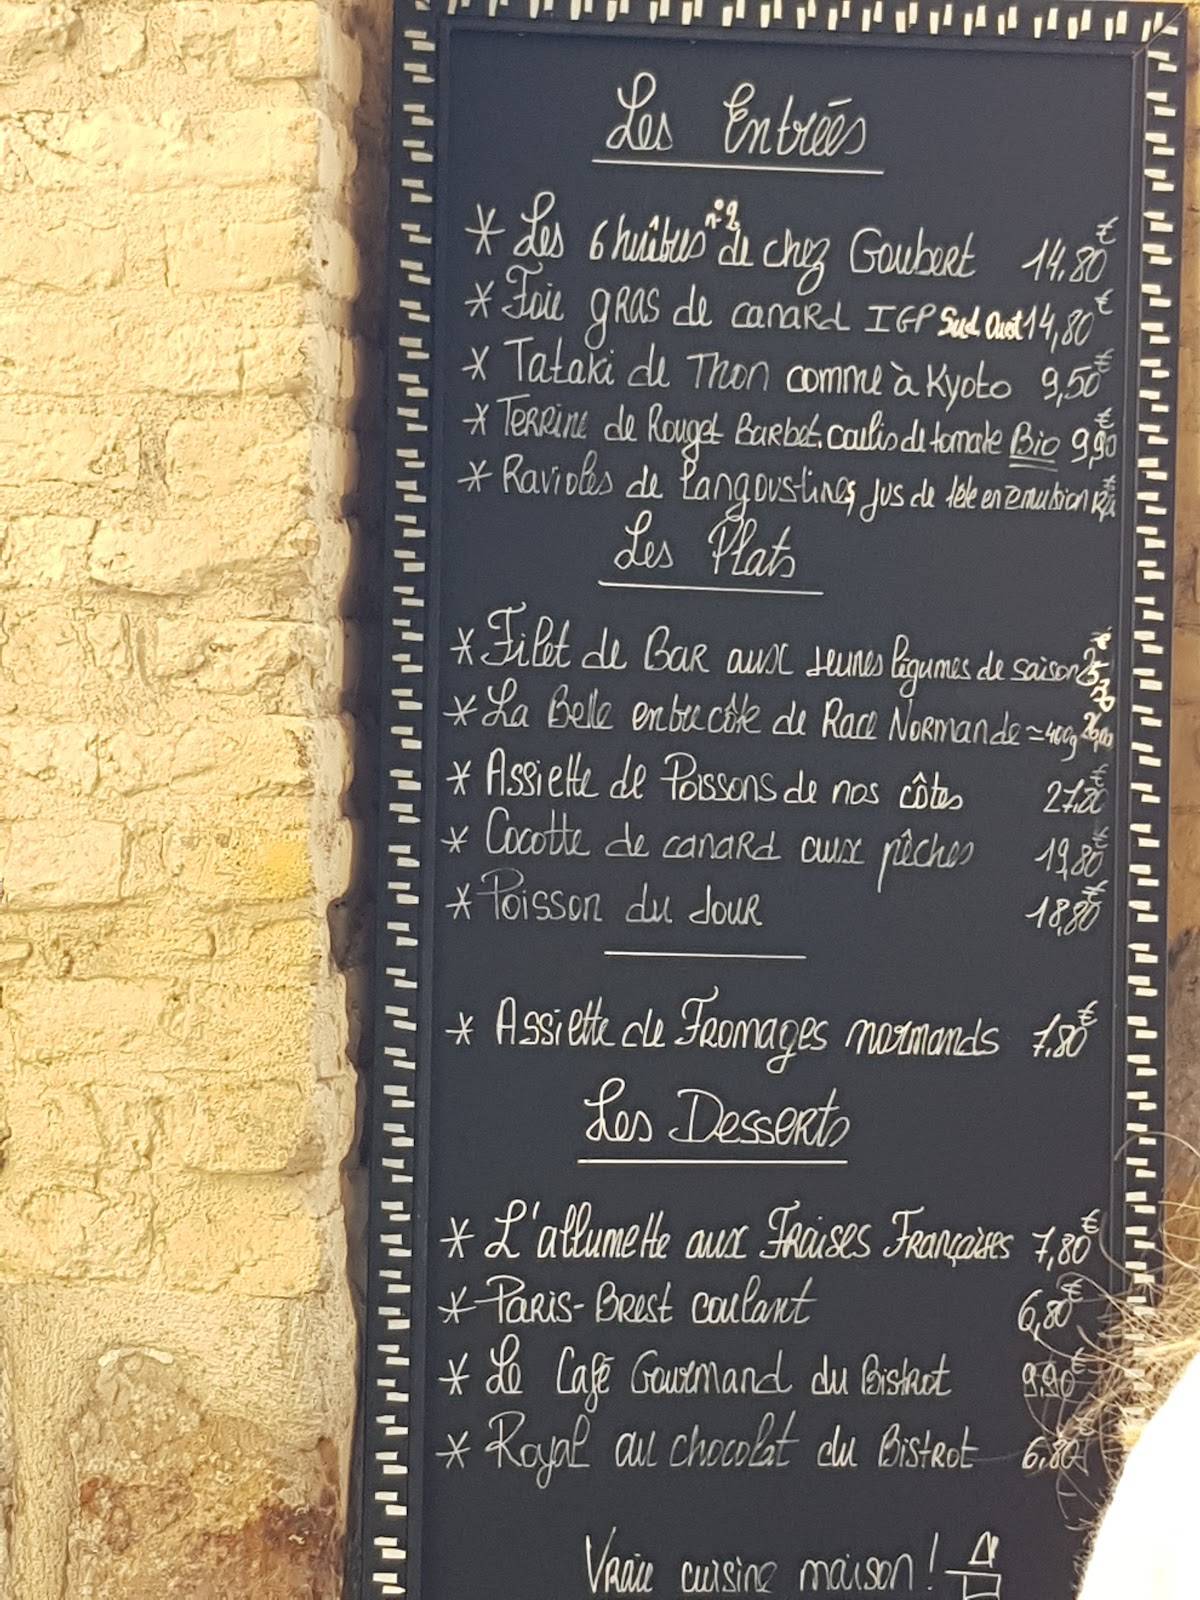 Les Entrées
* Les 6 huîtres n°2 de chez Goubert 14.80€
* Foie gras de canard IGP Sud Ouest 14,80€
* Tataki de Thon comme à Kyoto 9,50€
* Terrine de Rouget Barbet, coulis de tomate Bio 9,90€
* Ravioles de Langoustines, jus de tête en émulsion
Les Plats
* Filet de Bar aux jeunes légumes de saison
* La Belle entrecôte de Race Normande ≈ 400g
* Assiette de Poissons de nos côtes 27.80€
* Cocotte de canard aux pêches 19,80€
* Poisson du Jour 18,80€
* Assiette de Fromages normands 7.80€
Les Desserts
* L'allumette aux Fraises Françaises 7,80€
* Paris-Brest coulant 6,80€
* Le Café Gourmand du Bistrot 9.90€
* Royal au chocolat du Bistrot 6,80€
Vraie cuisine maison !